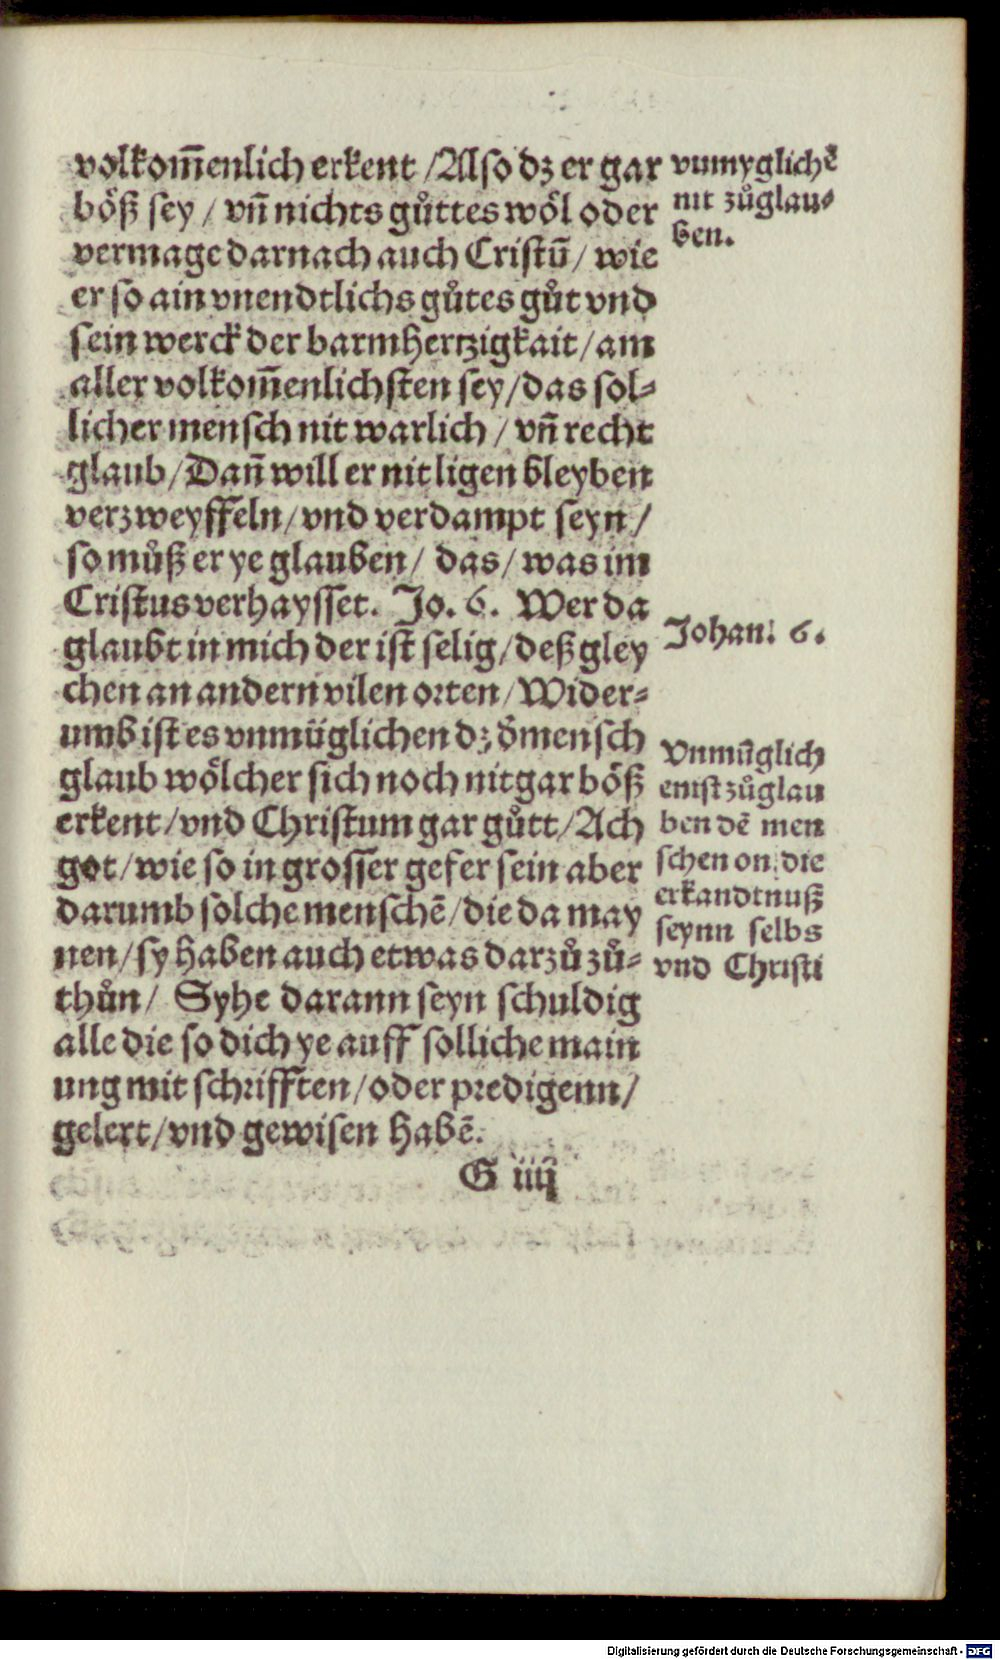 volkom̄enlich erkent /Also dz er gar
böß sey / vn̄ nichts gůttes wöl oder
vermage darnach auch Cristū/ wie
er so ain vnendtlichs gůtes gůt vnd
sein werck der barmhertzigkait/am
aller volkom̄enlichsten sey/das sol-
licher mensch nit warlich / vn̄ recht
glaub/Dan̄ will er nit ligen bleyben
verzweyffeln/vnd verdampt seyn/
so můß er ye glauben/ das/ was im
Cristus verhaysset. Jo. 6. Wer da
glaubt in mich der ist selig/deß gley
chen an andern vilen orten/Wider-
umb ist es vnmüglichen dz d̄ mensch
glaub wölcher sich noch nit gar böß
erkent/vnd Christum gar gůtt/Ach
got/wie so in grosser gefer sein aber
darumb solche menschē/die da may
nen/sy haben auch etwas darzů zů-
thůn/ Syhe darann seyn schuldig
alle die so dich ye auff solliche main
ung mit schrifften/oder predigenn/
gelert/vnd gewisen habē.
G iiij
vnmyglichē
nit zůglau-
ben.
Johan. 6.
Vnmüglich
emst zůglau
ben dē men
schen on die
erkandtnuß
seynn selbs
vnd Christi
Digitalisierung gefördert durch die Deutsche Forschungsgemeinschaft - DFG